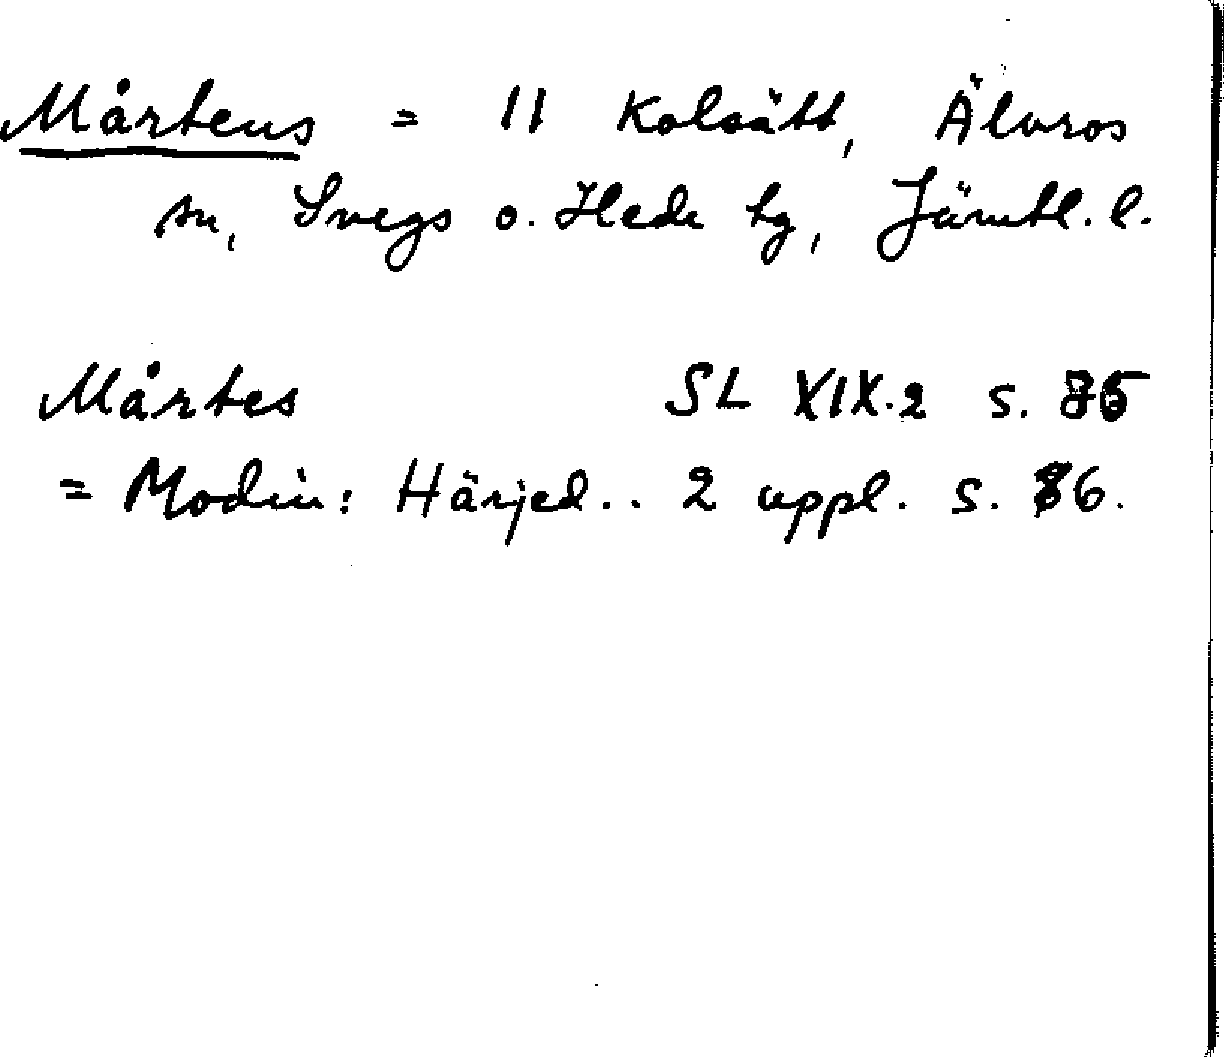 Mårtens = 11 Kolsätt, Älvros
sn, Svegs o. Hede tg, Jämtl. l.
Mårtes SL XIX.2 s.
= Modin: Härjed.. 2 uppl. s. 86.